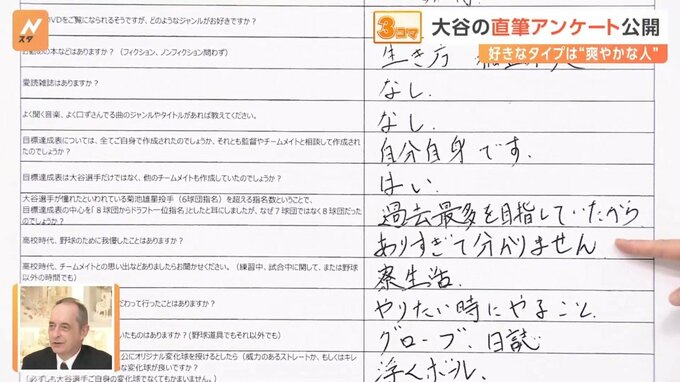 Nスタ
3コマ
大谷の直筆アンケート公開
好きなタイプは“爽やかな人”
DVDをご覧になられるそうですが、どのようなジャンルがお好きですか?
の本などはありますか?(フィクション、ノンフィクション問わず)
生き方
愛読雑誌はありますか?
なし.
よく聞く音楽、よく口ずさんでる曲のジャンルやタイトルがあれば教えてください。
なし.
目標達成表については、全てご自身で作成されたのでしょうか、それとも監督やチームメイトと相談して作成されたのでしょうか?
自分自身です.
目標達成表は大谷選手だけではなく、他のチームメイトも作成していたのでしょうか?
はい.
大谷選手が憧れたといわれている菊池雄星投手(6球団指名)を超える指名数ということで、
目標達成表の中心を「8球団からドラフト一位指名」としたと耳にしましたが、なぜ7球団ではなく8球団だったのでしょうか?
過去最多を目指していたから
高校時代、野球のために我慢したことはありますか?
ありすぎて分かりません.
高校時代、チームメイトとの思い出などありましたらお聞かせください。(練習中、試合中に関して、または野球以外の時間でも)
寮生活.
だわって行ったことはありますか?
やりたい時にやること.
いたものはありますか?(野球道具でもそれ以外でも)
グローブ、日誌
公にオリジナル変化球を授けるとしたら(威力のあるストレートか、もしくはキレ
な変化球が良いですか?
(必ずしも大谷選手ご自身の変化球でなくてもかまいません。)
浮くボール.